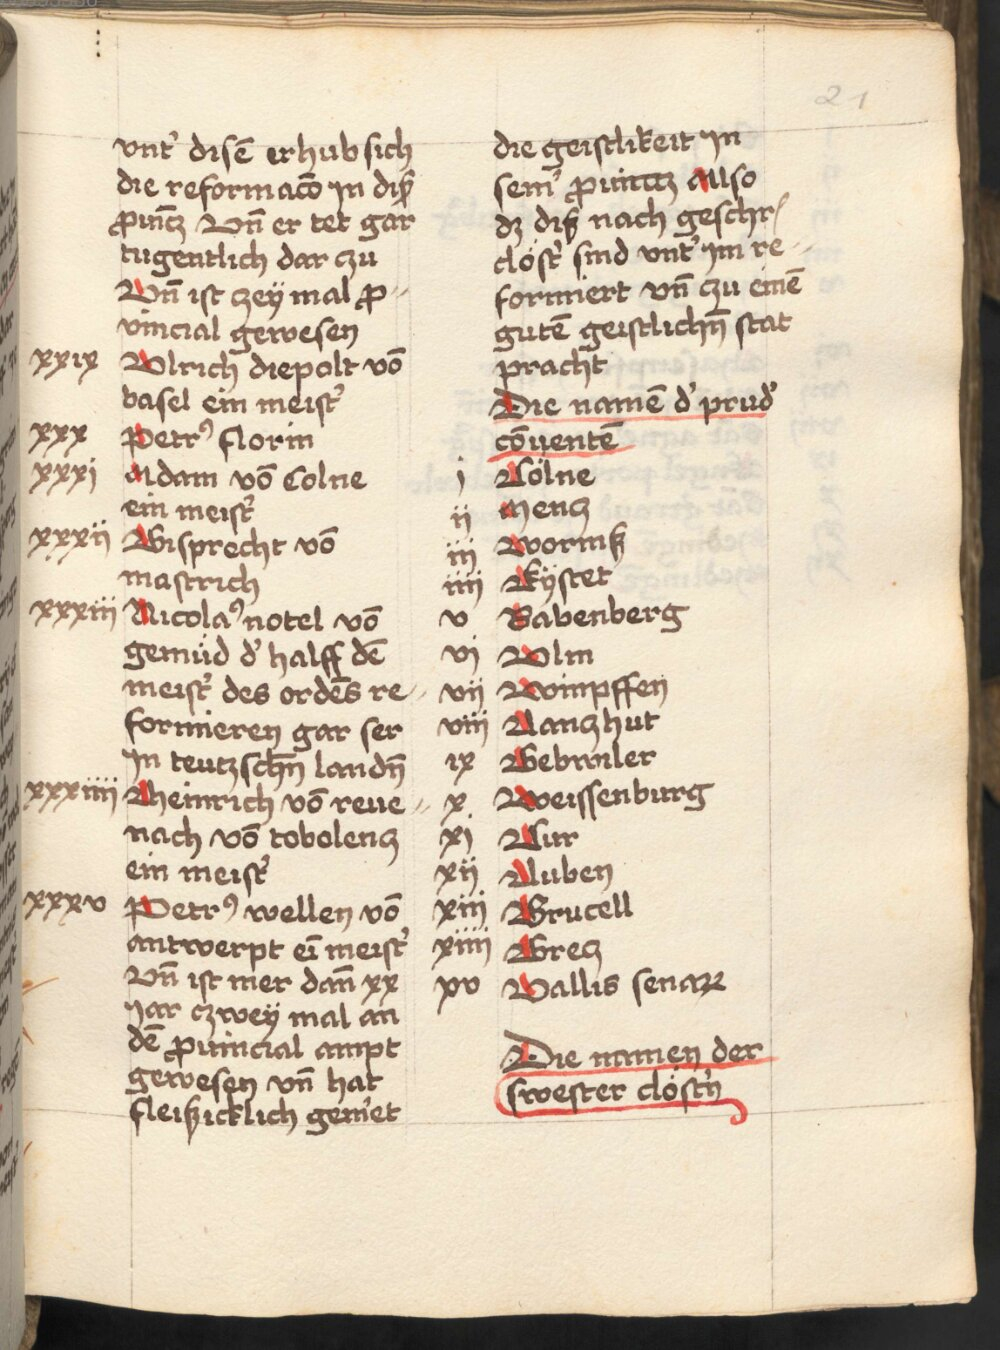 21
vnt' disē er hub sich
die reformacō yn diß
prouincz Vn̄ er tet gar
tugentlich dar czu
Vn̄ ist czey mal pro⸗
vincial gewesen
xxix Vlrich diepolt vō
basel ein meist'
xxx Petrꝰ florin
xxxi Adam vō Colne
ein meist'
xxxii Gisprecht vō
mastrich
xxxiii Nicolaꝰ notel vō
gemüd d' halff dē
meist' des ordēs re⸗
formieren gar ser
In teutzschn̄ landn̄
xxxiiii Heinrich vō reue⸗
nach vō cobolencz
ein meist'
xxxv Petrꝰ wellen vō
antwerpt eī meist'
Vn̄ ist mer dan̄ xx
yar czwey mal an
dē prouincial ampt
gewesen vn̄ hat
fleißicklich gem'et
die geistlikeit yn
sein' prouincz Allso
dz diß nach geschr'
clöst' sind vnt' ym re⸗
formiert vn̄ czu einē
gutē geistlichn̄ stat
pracht
Die namē d' prud'
cōuentē
i Cölne
ii Mencz
iii Wormß
iiii Eystet
v Babenberg
vi Vlm
vii Wimpffen
viii Lanczhut
ix Gebwiler
x Weissenburg
xi Cur
xii Luben
xiii Brucell
xiiii Grecz
xv Vallis senaꝝ
Die namen der
swester clöst'n